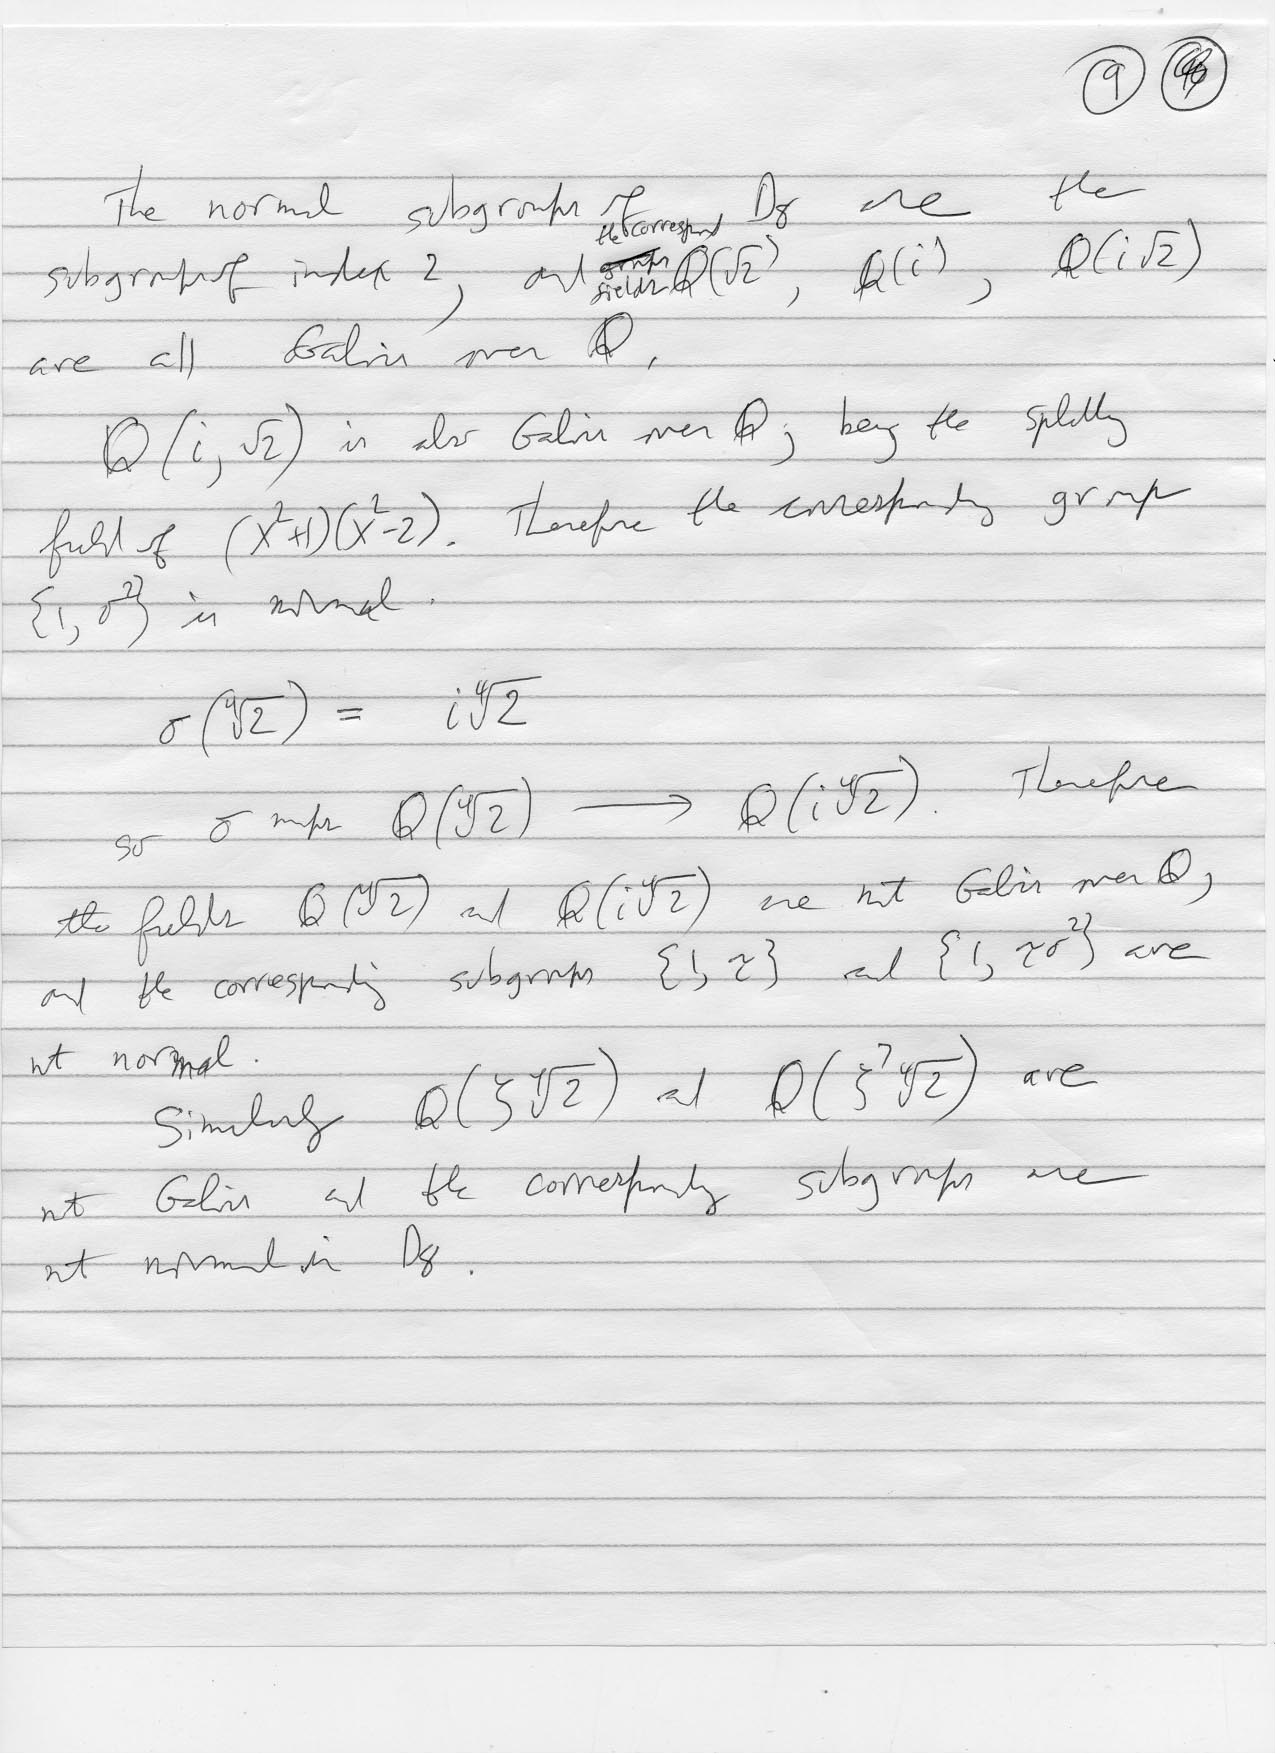 9
The normal subgroups of D8 are the
subgroups of index 2, and the correspond fields Q(√2), Q(i), Q(i√2)
are all Galois over Q.
Q(i, √2) is also Galois over Q, being the splitting
field of (X²+1)(X²-2). Therefore the corresponding group
{1, σ²} is normal.
σ(⁴√2) = i⁴√2
so σ maps Q(⁴√2) ⟶ Q(i⁴√2). Therefore
the fields Q(⁴√2) and Q(i⁴√2) are not Galois over Q,
and the corresponding subgroups {1, τ} and {1, τσ²} are
not normal.
Similarly Q(ζ⁴√2) and Q(ζ⁷⁴√2) are
not Galois and the corresponding subgroups are
not normal in D8.